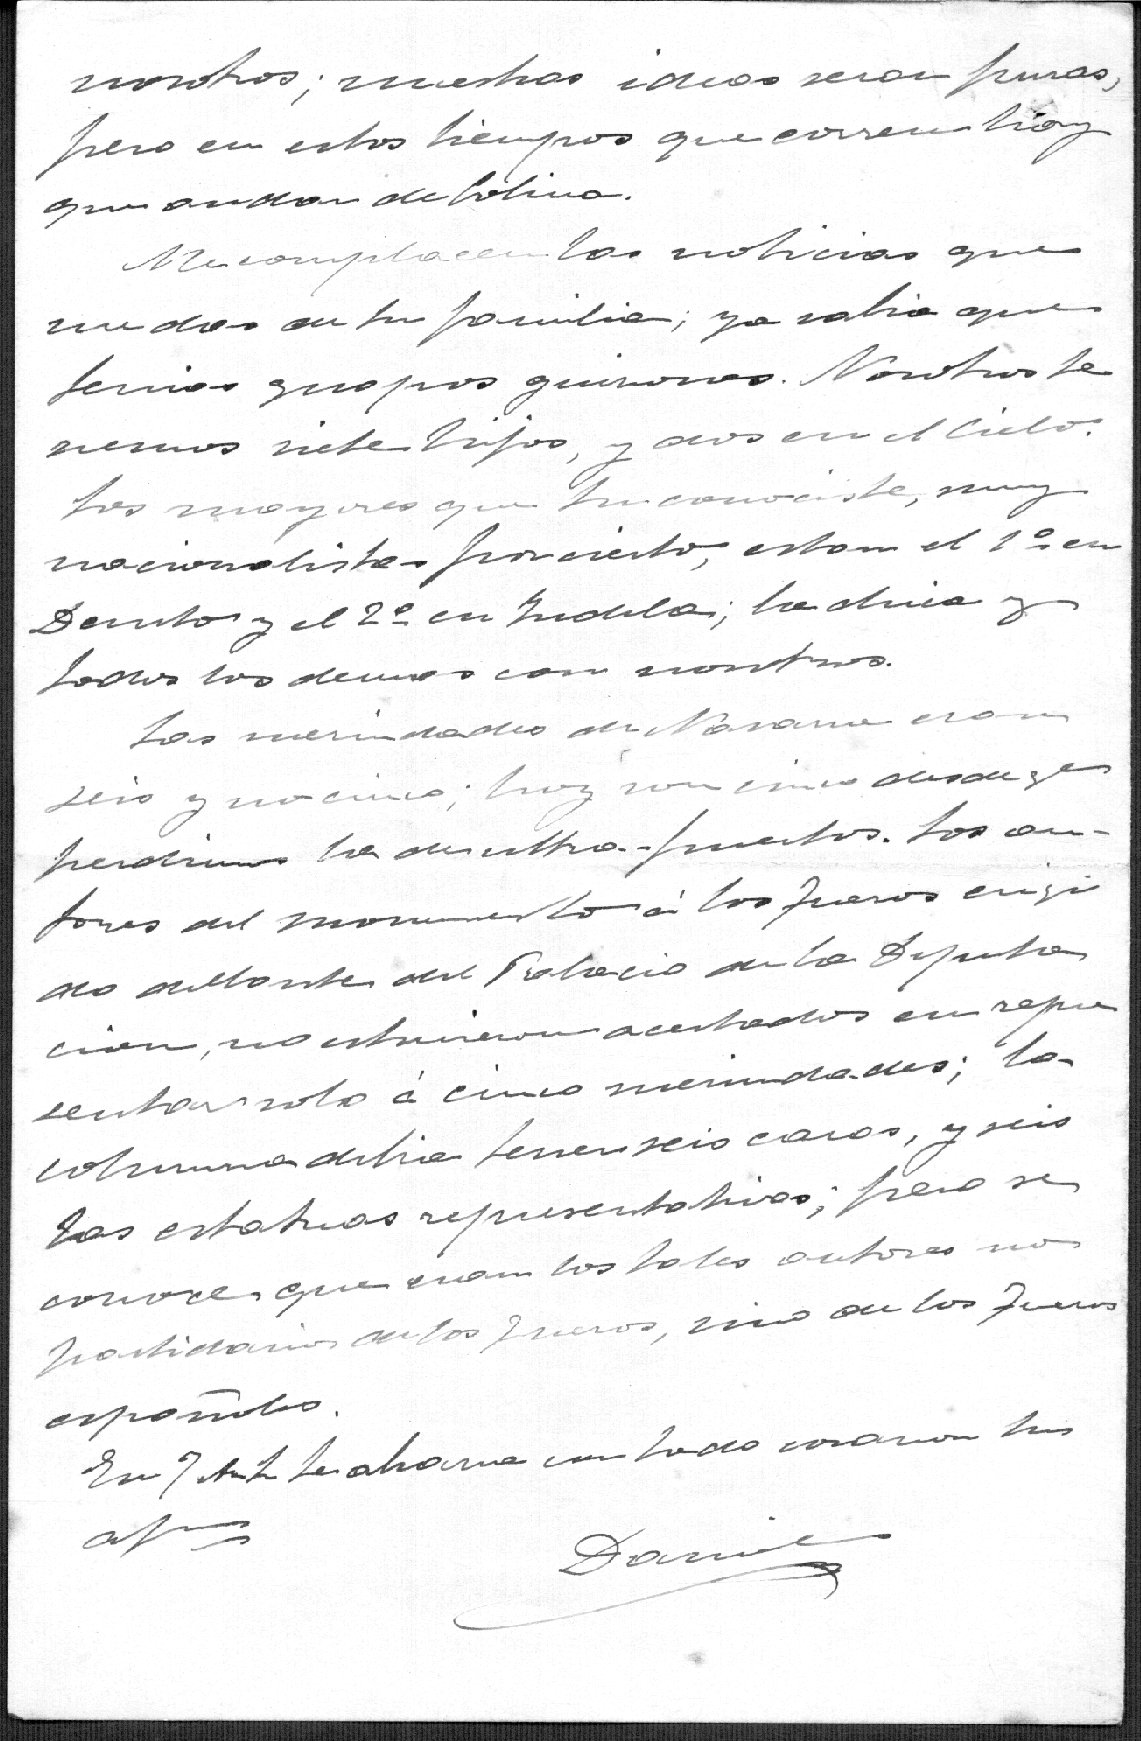 nosotros; nuestras ideas seran puras,
pero en estos tiempos que corren hay
que andar de bolina.
Me complacen las noticias que
me das de tu familia; ya sabia que
tenias guapos guizones. Nosotros te
nemos siete hijos, y dos en el Cielo.
Los mayores que tu conociste, muy
nacionalistas por cierto, estan el 1º en
Deusto y el 2º en Tudela; la chica y
todos los demas con nosotros.
Las merindades de Navarra eran
seis y no cinco; hoy son cinco desde qe
perdimos la de ultra-puertos. Los au-
tores del monumento á los Fueros erigi
do delante del Palacio de la Diputa
cion, no estuvieron acertados en repre
sentar solo á cinco merindades; la
columna debia tener seis caras, y seis
las estatuas representativas; pero se
conoce que eran los tales autores no
partidarios de los Fueros, sino de los Fueros
españoles.
En J te abraza con todo corazon tu
afmo
Daniel